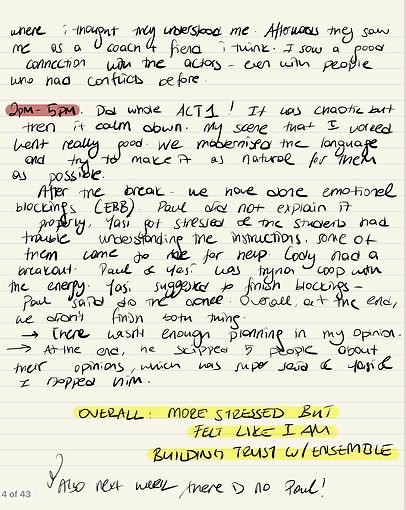 where i thought they understood me. Afterwards they saw
me as a coach & friend i think. I saw a good
connection with the actors - even with people
who had conflicts before.
2pm - 5pm. Did whole ACT 1! It was chaotic but
then it calm down. My scene that I worked
went really good. We modernised the language
and try to make it as natural for them
as possible.
After the break - we have done emotional
blockings (EBB). Paul did not explain it
properly, Yasi got stressed & the students had
trouble understanding the instructions. some of
them came to me for help. Cody had a
breakout. Paul & Yasi was tryna coop with
the energy. Yasi suggested to finish blockings -
Paul said do the other. Overall, at the end,
we didn't finish both thing.
→ There wasn't enough planning in my opinion.
→ At the end, he skipped 5 people about
their opinions, which was super sad &
I stopped him.
OVERALL: MORE STRESSED BUT
FELT LIKE I AM
BUILDING TRUST W/ ENSEMBLE
Also next week, there is no Paul!
4 of 43